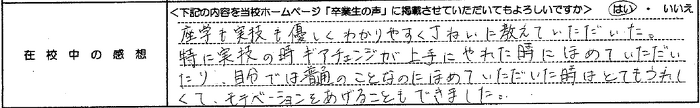 <下記の内容を当校ホームページ「卒業生の声」に掲載させていただいてもよろしいですか> はい・いいえ
在校中の感想
座学も実技も優しくわかりやすくていねいに教えていただいた。
特に実技の時ギアチェンジが上手にやれた時にほめていただい
たり、自分では普通のことなのにほめていただいた時はとてもうれし
くて、モチベーションをあげることもできました。